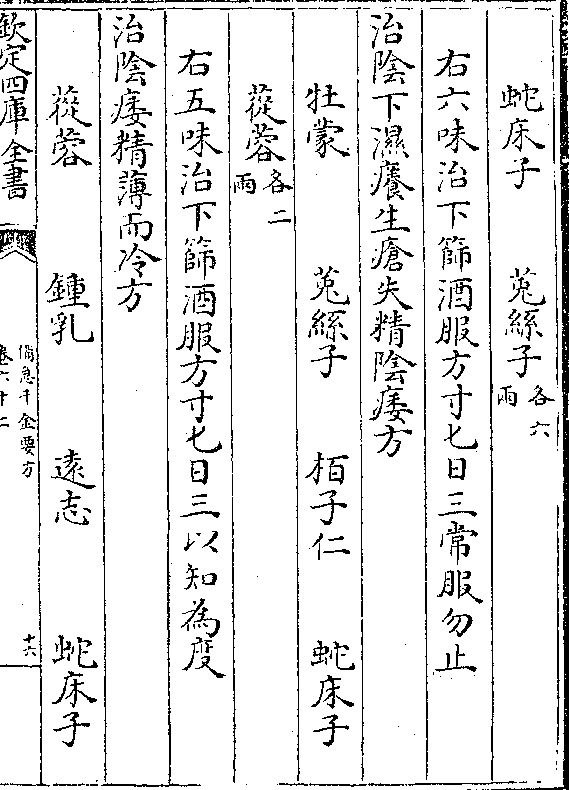 蛇床子 兎絲子各六兩
右六味治下篩酒服方寸匕日三常服勿止
治陰下濕癢生瘡失精陰痿方
牡蒙 兎絲子 栢子仁 蛇床子
蓯蓉各二兩
右五味治下篩酒服方寸匕日三以知為度
治陰痿精薄而冷方
蓯蓉 鍾乳 遠志 蛇床子
欽定四庫全書
備急千金要方
卷六十二
十六